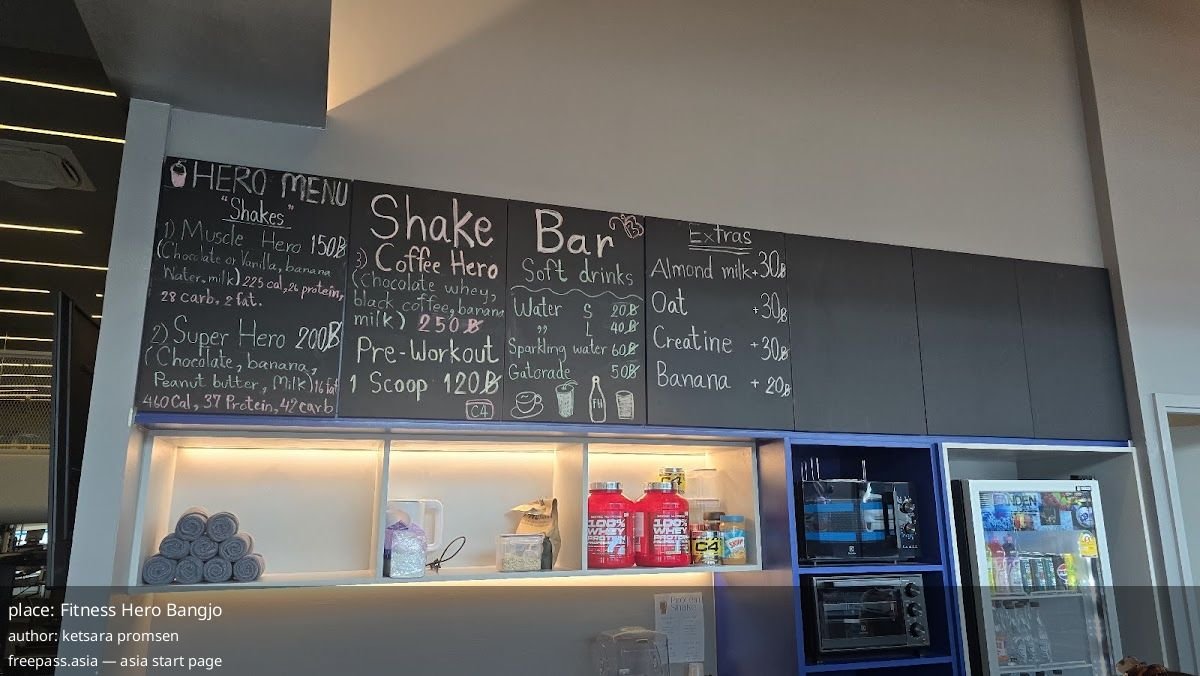 HERO MENU
"Shakes"
1) Muscle Hero 150฿
(Chocolate or Vanilla, banana
Water, milk) 225 cal, 26 protein,
28 carb, 2 fat.
2) Super Hero 200฿
(Chocolate, banana,
Peanut butter, Milk) 16 fat
460 Cal, 37 Protein, 42 carb
Shake
3) Coffee Hero
(Chocolate whey,
black coffee, banana
milk) 250฿
Pre-Workout
1 Scoop 120฿
C4
Bar
Soft drinks
Water S 20฿
" L 40฿
Sparkling water 60฿
Gatorade 50฿
FH
Extras
Almond milk +30฿
Oat +30฿
Creatine +30฿
Banana +20฿
100%
WHEY
PROTEIN
100%
WHEY
PROTEIN
C4
Protein
Shake
place: Fitness Hero Bangjo
author: ketsara promsen
freepass.asia — asia start page